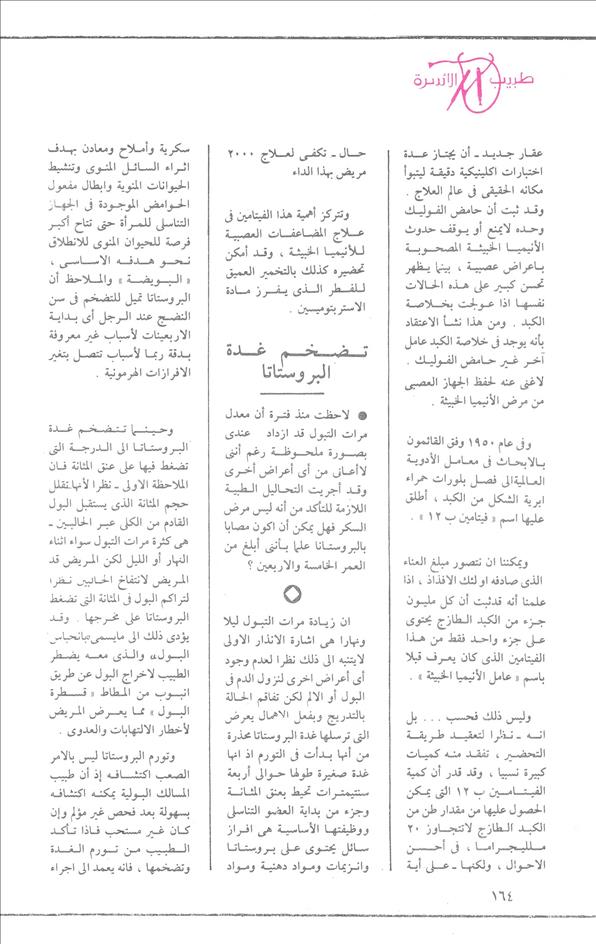 طبيب الأسرة
عقار جديد ـ أن يجتاز عدة
اختبارات اكلينيكية دقيقة ليتبوأ
مكانه الحقيقى في عالم العلاج .
وقد ثبت أن حامض الفوليك
وحده لايمنع أو يوقف حدوث
الأنيميا الخبيثة المصحوبة
باعراض عصبية ، بينما يظهر
تحسن كبير على هذه الحالات
نفسها اذا عولجت بخلاصة
الكبد . ومن هذا نشأ الاعتقاد
بأنه يوجد في خلاصة الكبد عامل
آخر غير حامض الفوليك .
لاغنى عنه لحفظ الجهاز العصبى
من مرض الأنيميا الخبيثة .
وفى عام ١٩٥٠ وفق القائمون
بالأبحاث في معامل الأدوية
العالمية الى فصل بلورات حمراء
ابرية الشكل من الكبد ، أطلق
عليها اسم « فيتامين ب ١٢ » .
ويمكننا ان نتصور مبلغ العناء
الذى صادفه اولئك الافذاذ ، اذا
علمنا أنه قدثبت أن كل مليون
جزء من الكبد الطازج يحتوى
على جزء واحد فقط من هذا
الفيتامين الذى كان يعرف قبلا
باسم « عامل الأنيميا الخبيثة » .
وليس ذلك فحسب ... بل
انه ـ نظرا لتعقيد طريقة
التحضير ، تفقد منه كميات
كبيرة نسبيا ، وقد قدر أن كمية
الفيتامين ب ١٢ التى يمكن
الحصول عليها من مقدار طن من
الكبد الطازج لاتتجاوز ٢٠
ملليجراما ، في أحسن
الاحوال ، ولكنها ـ على أية
حال ـ تكفى لعلاج ٢٠٠٠
مريض بهذا الداء
وتتركز أهمية هذا الفيتامين في
علاج المضاعفات العصبية
للأنيميا الخبيثة ، وقد أمكن
تحضيره كذلك بالتخمير العميق
للفطر الذى يفرز مادة
الاستربتوميسين .
تضخم غدة
البروستاتا
● لاحظت منذ فترة أن معدل
مرات التبول قد ازداد عندى
بصورة ملحوظة رغم أننى
لاأعانى من أى أعراض أخرى
وقد أجريت التحاليل الطبية
اللازمة للتأكد من أنه ليس مرض
السكر فهل يمكن أن اكون مصابا
بالبروستاتا علما بأننى أبلغ من
العمر الخامسة والاربعين ؟
ان زيادة مرات التبول ليلا
ونهارا هى اشارة الانذار الاولى
لايتنبه الى ذلك نظرا لعدم وجود
أى أعراض اخرى لنزول الدم في
البول أو الالم لكن تفاقم الحالة
بالتدريج وبفعل الاهمال يعرض
التى ترسلها غدة البروستاتا محذرة
من أنها بدأت في التورم اذ انها
غدة صغيرة طولها حوالى أربعة
سنتيمترات تحيط بعنق المثانة
وجزء من بداية العضو التناسلى
ووظيفتها الأساسية هى افراز
سائل يحتوى على بروستاتا
وانزيمات ومواد دهنية ومواد
سكرية وأملاح ومعادن بهدف
اثراء السائل المنوى وتنشيط
الحيوانات المنوية وابطال مفعول
الحوامض الموجودة في الجهاز
التناسلى للمرأة حتى تتاح أكبر
فرصة للحيوان المنوى للانطلاق
نحو هدفه الاساسى ،
« البويضة » والملاحظ أن
البروستاتا تميل للتضخم في سن
النضج عند الرجل أى بداية
الاربعينات لأسباب غير معروفة
بدقة ربما لأسباب تتصل بتغير
الافرازات الهرمونية .
وحينما تتضخم غدة
البروستاتا الى الدرجة التى
تضغط فيها على عنق المثانة فان
الملاحظة الاولى ـ نظرا لأنها تقلل
حجم المثانة الذى يستقبل البول
القادم من الكلى عبر الحالبين ـ
هى كثرة مرات التبول سواء اثناء
النهار أو الليل لكن المريض قد
المريض لانتفاخ الحالبين نظرا
لتراكم البول في المثانة التى تضغط
البروستاتا على مخرجها . وقد
يؤدى ذلك الى مايسمى «بانحباس
البول» والذى معه يضطر
الطبيب لاخراج البول عن طريق
انبوب من المطاط « قسطرة
البول » مما يعرض المريض
لأخطار الالتهابات والعدوى .
وتورم البروستاتا ليس بالامر
الصعب اكتشافه إذ أن طبيب
المسالك البولية يمكنه اكتشافه
بسهولة بعد فحص غير مؤلم وإن
كان غير مستحب فاذا تأكد
الطبيب من تورم الغدة
وتضخمها ، فانه يعمد الى اجراء
١٦٤